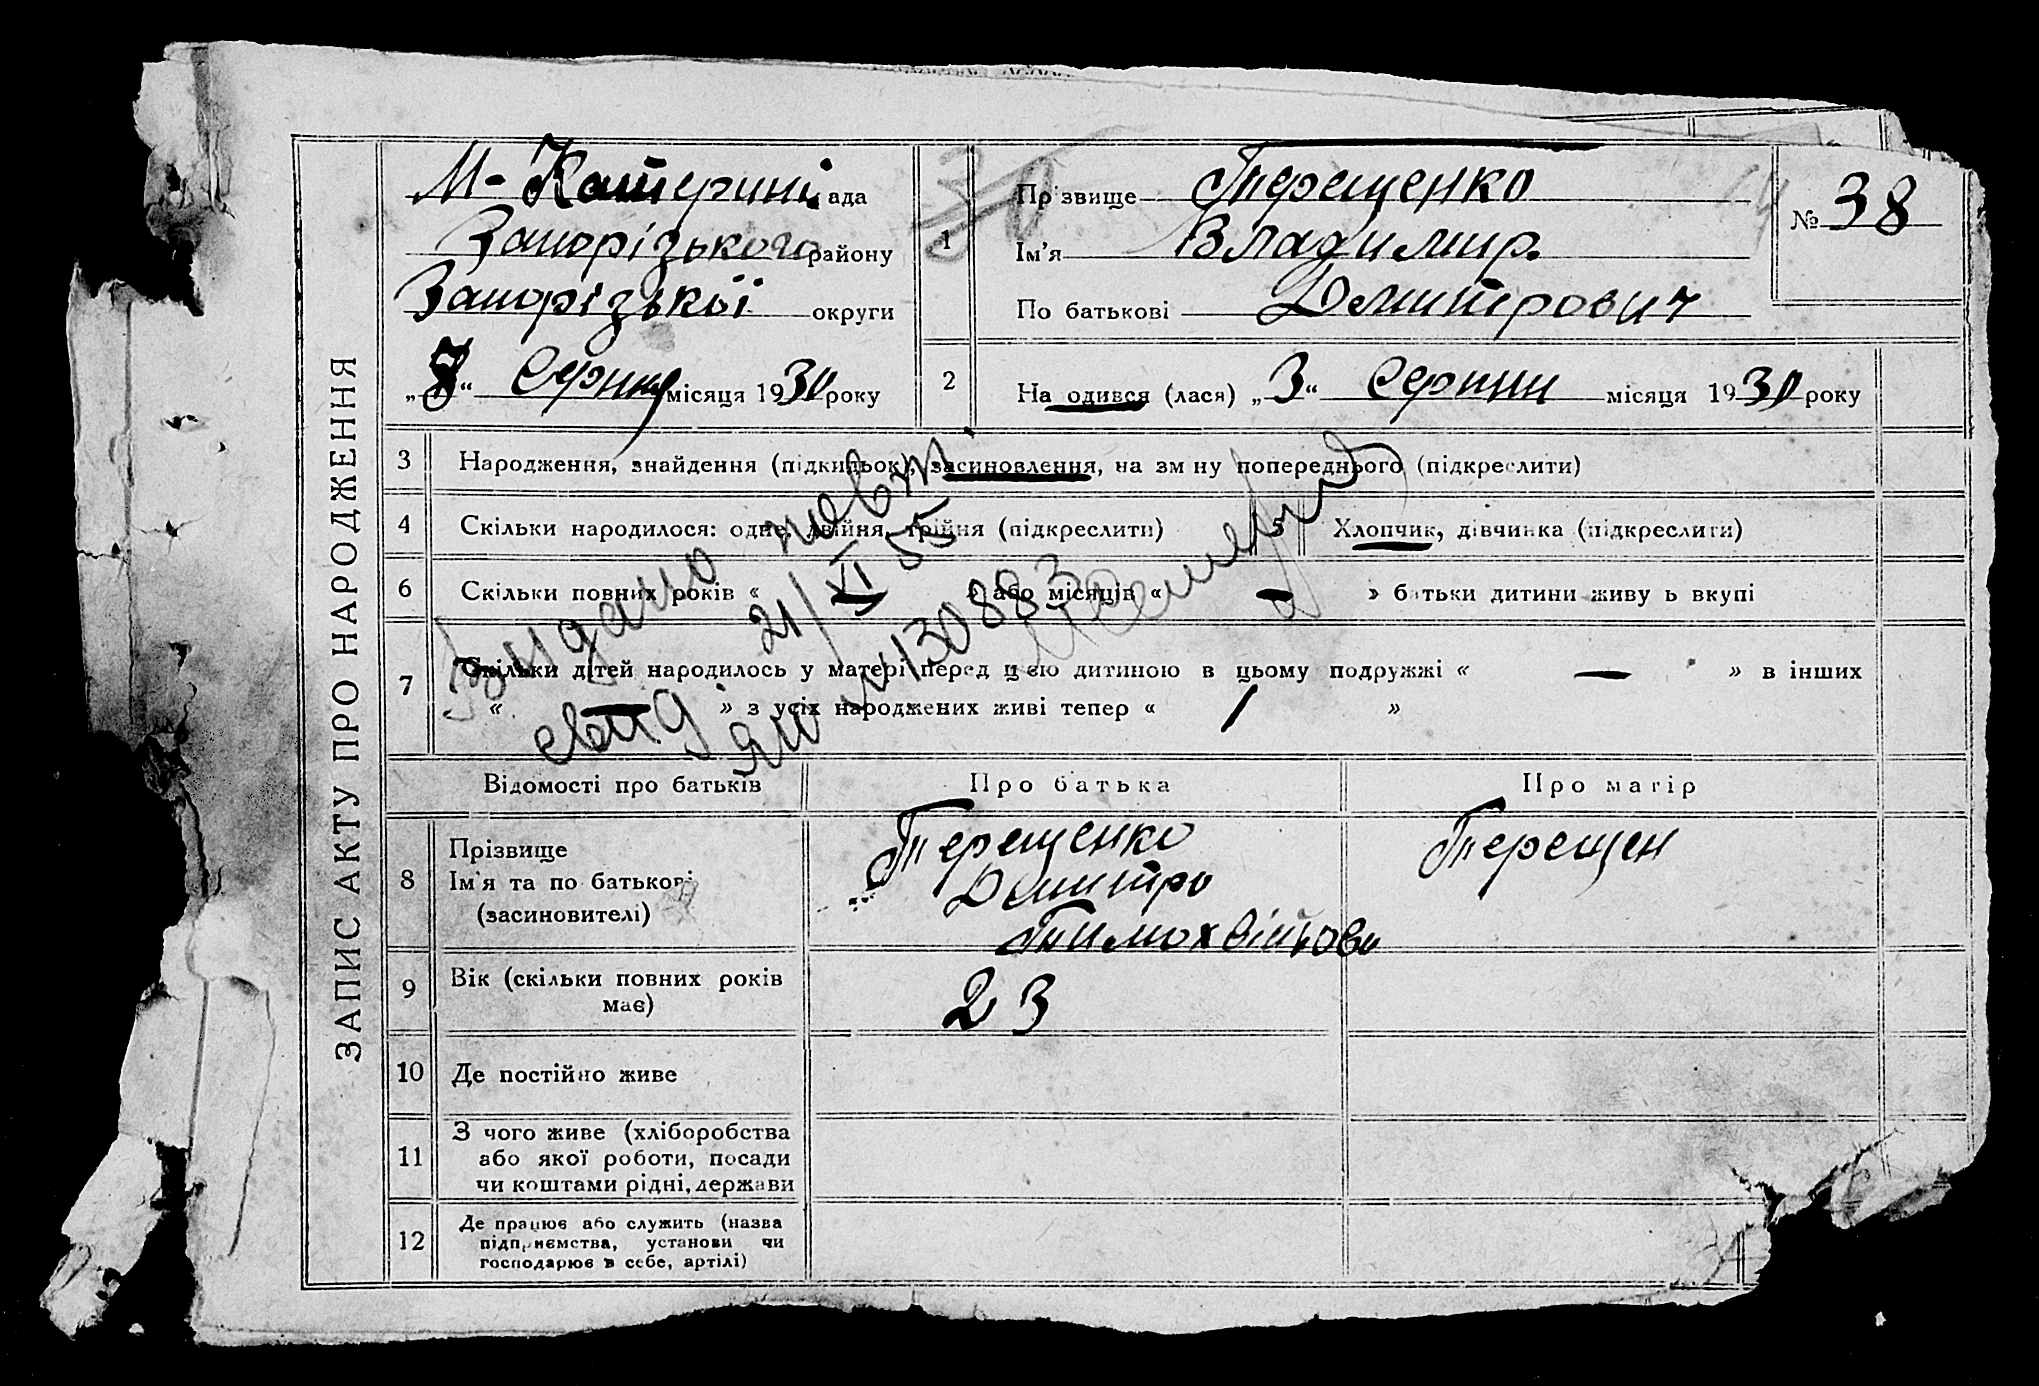 ЗАПИС АКТУ ПРО НАРОДЖЕННЯ
М-Катерині ада
Запорізького району
Запорізької округи
„8“ Серпня місяця 1930 року
1
Пр звище Терещенко
Ім’я Владимир
По батькові Дмитрович
№ 38
2
На одився (лася) „3“ Серпни місяця 1930 року
3 Народження, знайдення (підкидьок), засиновлення, на зм ну попереднього (підкреслити)
4 Скільки народилося: одне, двійня, трійня (підкреслити)
5 Хлопчик, дівчинка (підкреслити)
6 Скільки повних років « — » або місяців « — » батьки дитини живу ь вкупі
7 Скільки дітей народилось у матері перед цією дитиною в цьому подружжі « — » в інших
« — » з усіх народжених живі тепер « 1 »
Видано повт.
21/VI 55
свид
яю № 130883
Відомості про батьків
Про батька
Про матір
8
Прізвище
Ім’я та по батькові
(засиновителі)
Терещенко
Дмитро
Тимохвійови
Терещен
9
Вік (скільки повних років
має)
23
10 Де постійно живе
11
З чого живе (хліборобства
або якої роботи, посади
чи коштами рідні, держави
12
Де працює або служить (назва
підприємства, установи чи
господарює в себе, артілі)